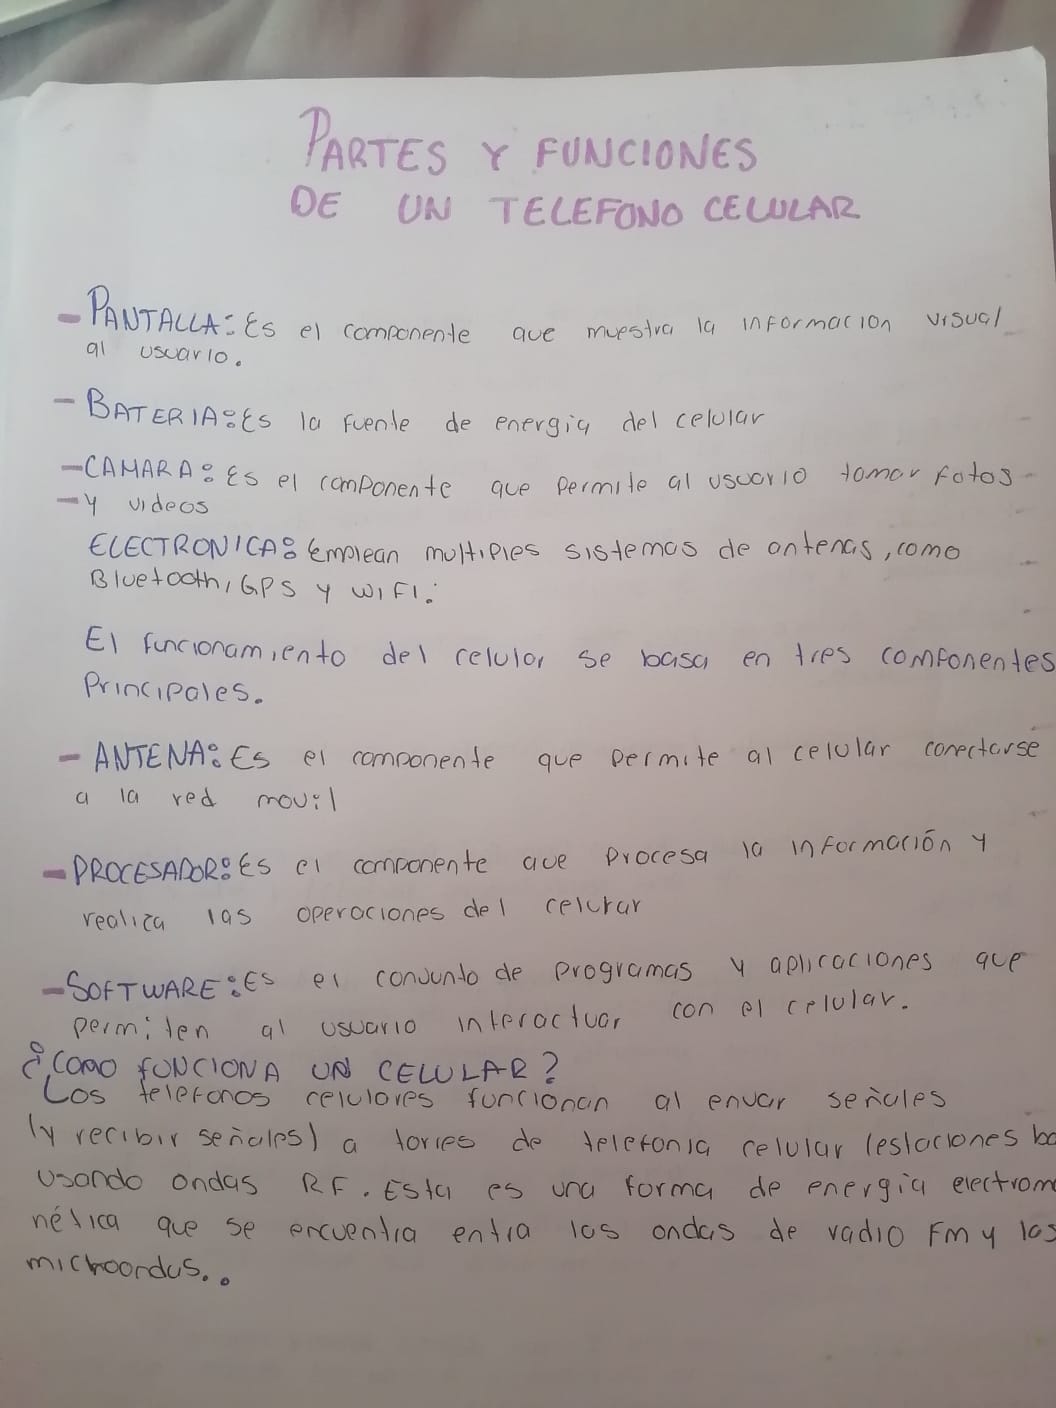 PARTES Y FUNCIONES
DE UN TELEFONO CELULAR
- PANTALLA: Es el componente que muestra la informacion visual
al usuario.
- BATERIA: Es la fuente de energia del celular
- CAMARA: Es el componente que permite al usuario tomar fotos
- y videos
ELECTRONICA: Emplean multiples sistemas de antenas, como
Bluetooth, GPS y WIFI.
El funcionamiento del celular se basa en tres componentes
Principales.
- ANTENA: Es el componente que permite al celular conectarse
a la red movil
- PROCESADOR: Es el componente que procesa la información y
realiza las operaciones del celular
- SOFTWARE: Es el conjunto de programas y aplicaciones que
permiten al usuario interactuar con el celular.
¿COMO FUNCIONA UN CELULAR?
Los telefonos celulares funcionan al envar señales
(y recibir señales) a torres de telefonia celular (estaciones ba
usando ondas RF. Esta es una forma de energia electrom
nética que se encuentra entra las ondas de radio FM y las
microondas..